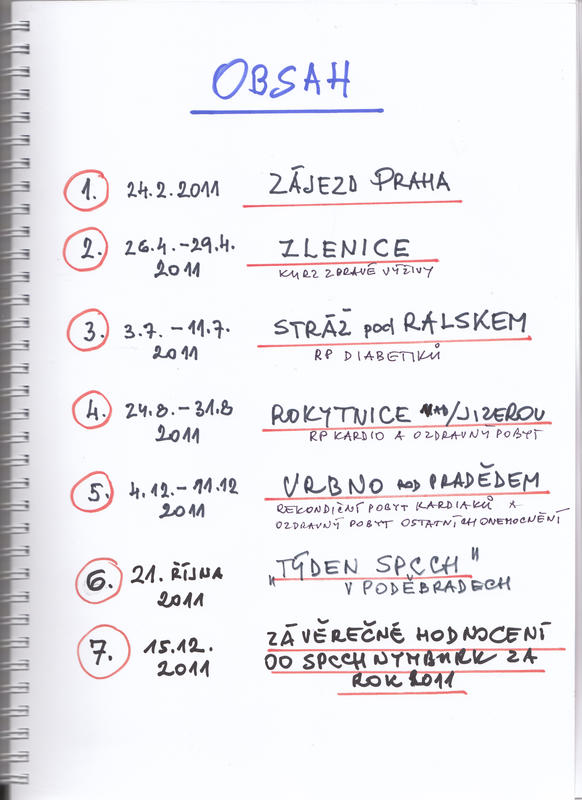 OBSAH
1. 24.2.2011 ZÁJEZD PRAHA
2. 26.4.-29.4. ZLENICE
2011 KURZ ZDRAVÉ VÝŽIVY
3. 3.7. - 11.7. STRÁŽ pod RALSKEM
2011 RP DIABETIKŮ
4. 24.8.-31.8 ROKYTNICE NAD/JIZEROU
2011 RP KARDIO A OZDRAVNÝ POBYT
5. 4.12.-11.12 VRBNO POD PRADĚDEM
2011 REKONDIČNÍ POBYT KARDIAKŮ A
OZDRAVNÝ POBYT OSTATNÍCH ONEMOCNĚNÍ
6. 21. ŘÍJNA „TÝDEN SPCCH"
2011 V PODĚBRADECH
7. 15.12. ZÁVĚREČNÉ HODNOCENÍ
2011 OO SPCCH NYMBURK ZA
ROK 2011